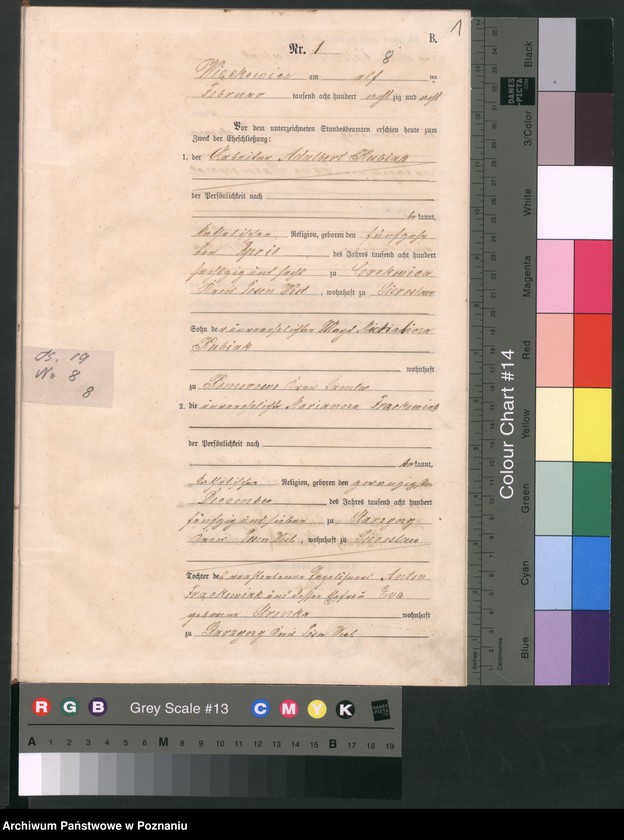 1
B.
Nr. 1
8
Więckowice am elf ten
Februar tausend acht hundert achtzig und acht
Vor dem unterzeichneten Standesbeamten erschien heute zum
Zweck der Eheschließung:
1. der Arbeiter Adalbert Kubiak
der Persönlichkeit nach
bekannt,
katholischer Religion, geboren den fünfzehn
ten April des Jahres tausend acht hundert
sechszig und sechs zu
Kreis Posen West, wohnhaft zu
Sohn der unverehelichten Magd
Kubiak
wohnhaft
zu Kreis Samter
2. die unverehelichte Marianna Frąckowiak
der Persönlichkeit nach
bekannt,
katholischer Religion, geboren den zwanzigsten
December des Jahres tausend acht hundert
fünfzig und sieben zu
Kreis Posen West, wohnhaft zu
Tochter des verstorbenen Anton
Frąckowiak und dessen Ehefrau Eva
geborene wohnhaft
zu Kreis Posen West
19
No 8
8
Colour Chart #14
Black
3/Color
White
Magenta
Red
Yellow
Green
Cyan
Blue
DANES
-PICTA
.COM
Inches
Centimetres
R G B Grey Scale #13 C M Y K
A 1 2 3 4 5 6 M 8 9 10 11 12 13 14 15 B 17 18 19
Archiwum Państwowe w Poznaniu